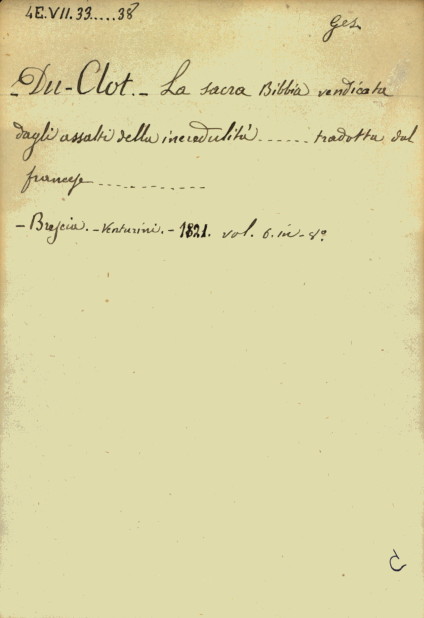 4E.VII.33.....38
Ges.
- Du-Clot. - La sacra Bibbia vendicata
dagli assalti della incredulità ...... tradotta dal
francese .............
- Brescia. - Venturini. - 1821. vol. 6. in - 8°
C